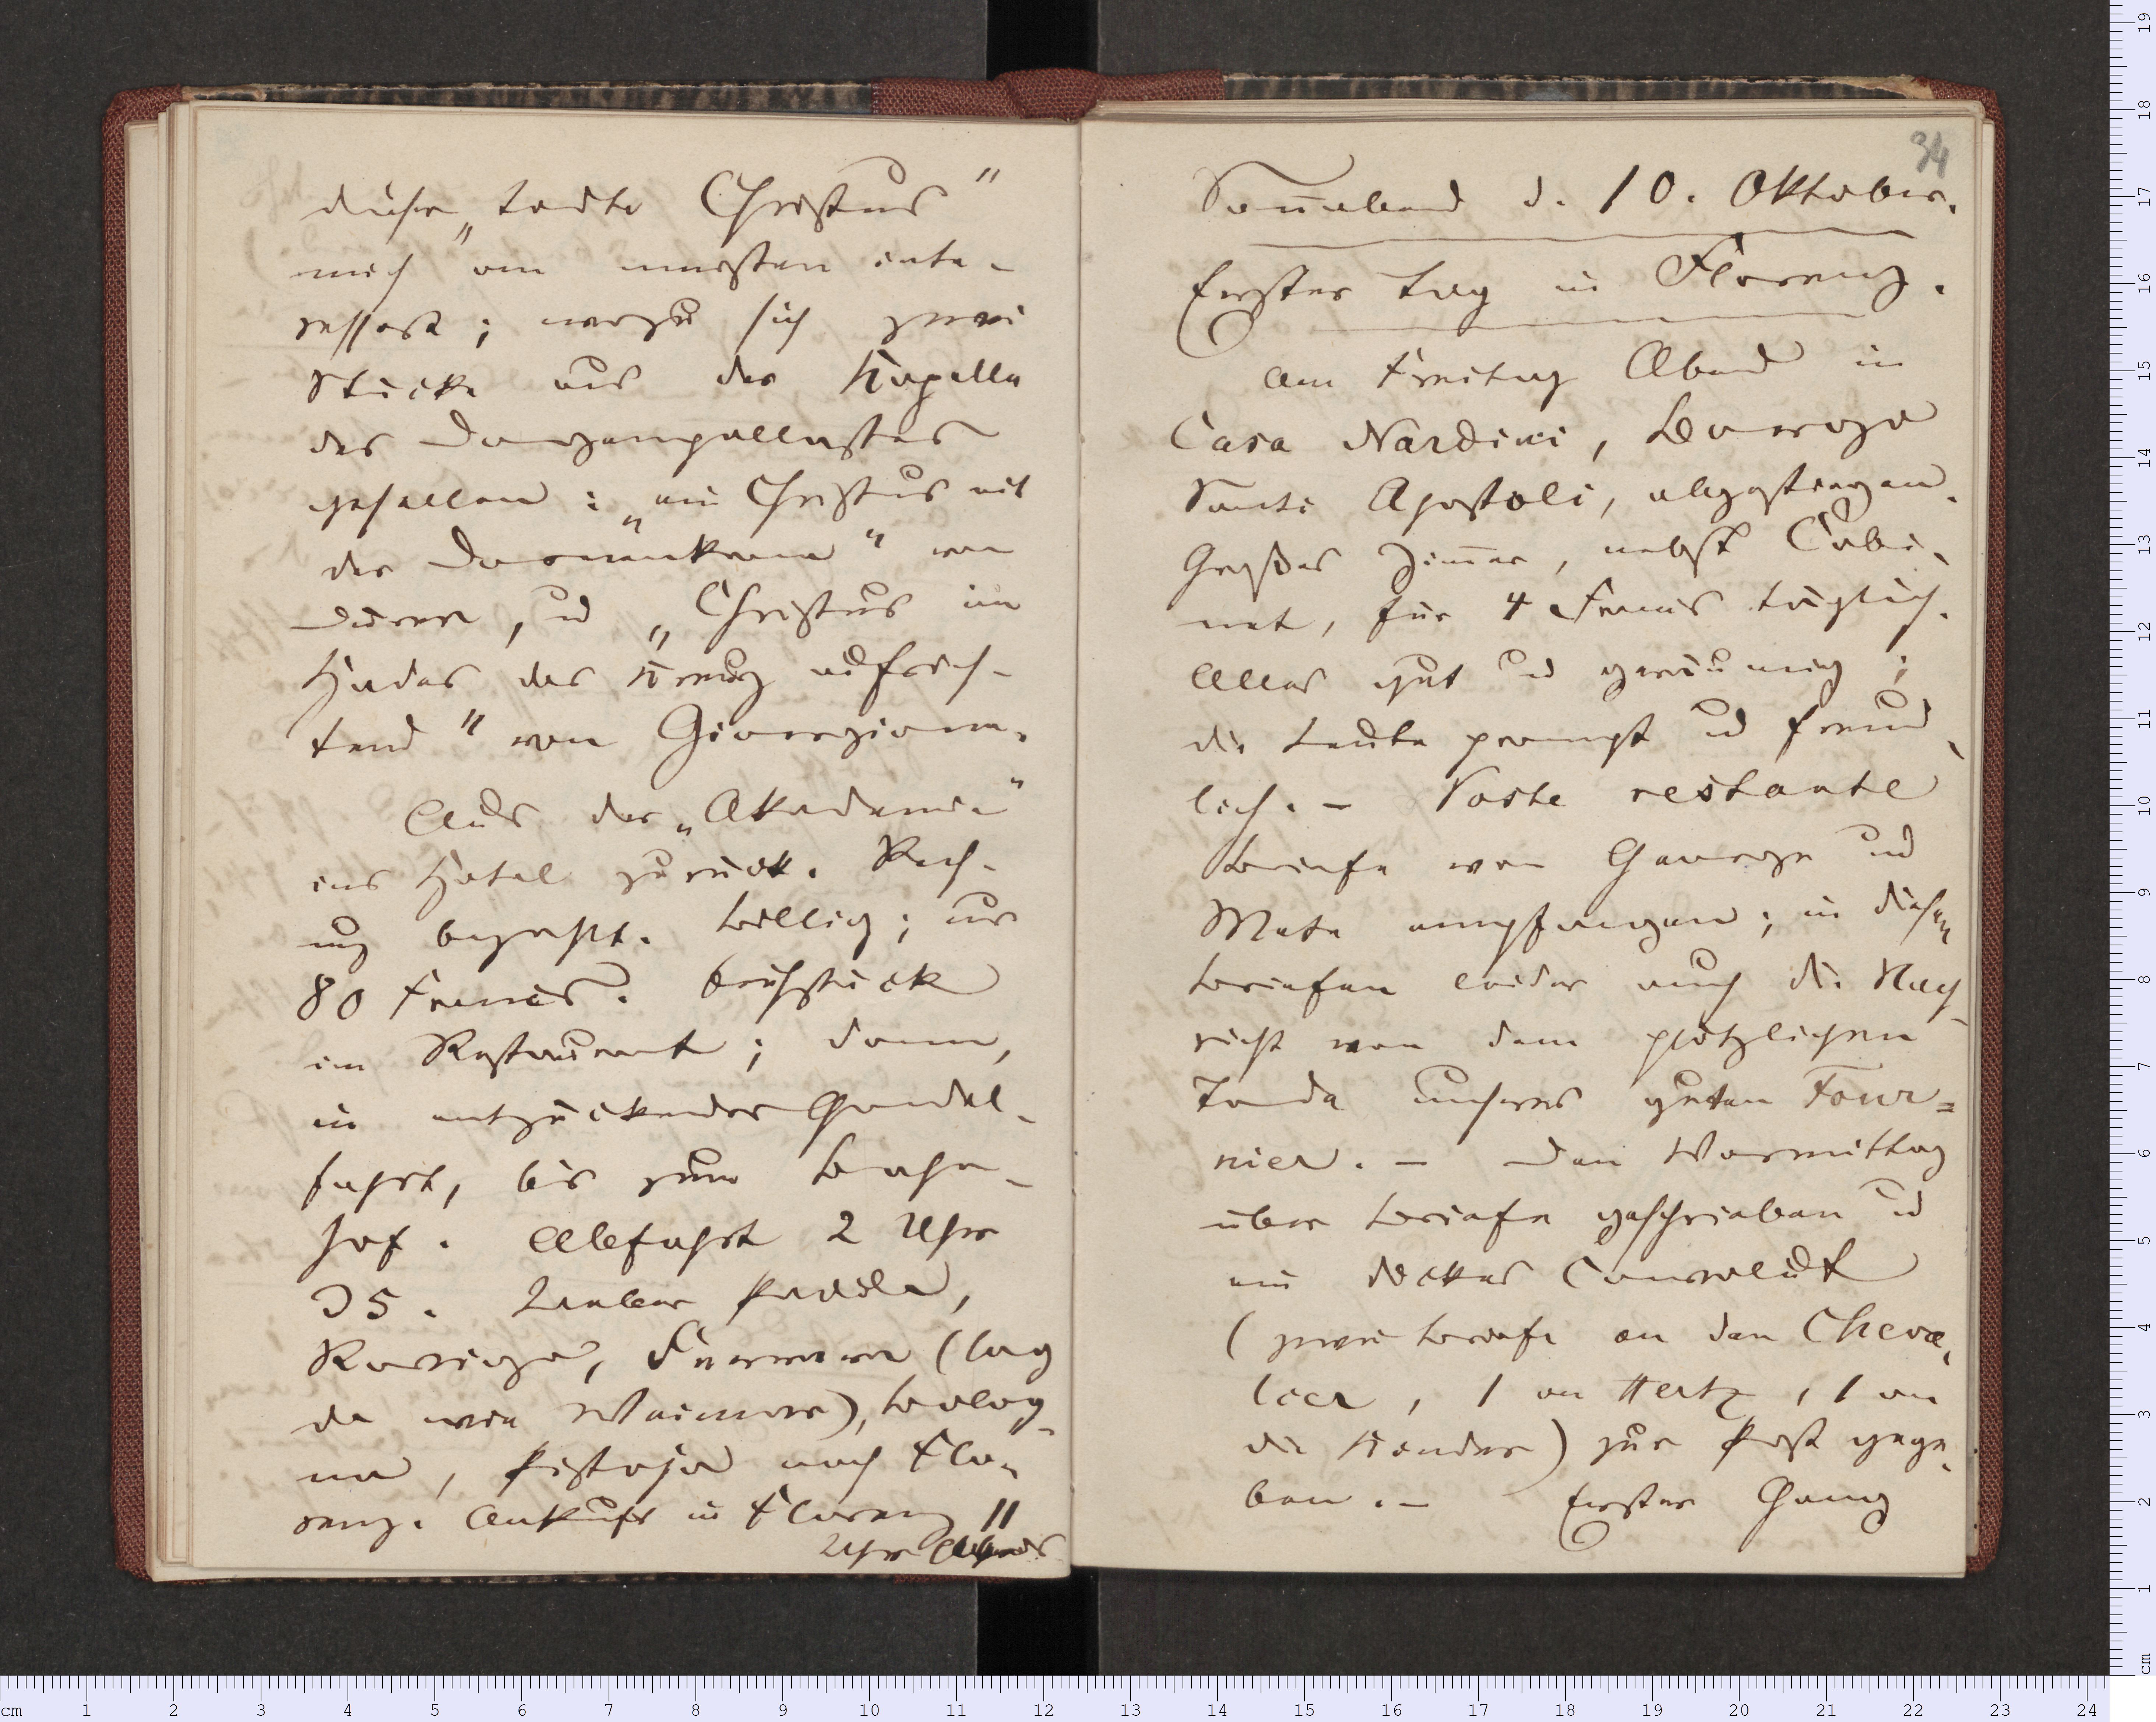 dieser „todte Christus"
mich am meisten inte-
ressirt; wozu sich zwei
Stücke aus der Kapelle
des Dogenpallastes
gesellen: „ein Christus mit
der Dornenkrone" von
Dürer, u „Christus im
Hades das Kreuz aufrich-
tend" von Giorgione.
Aus der „Akademie"
ins Hotel zurück. Rech-
nung bezahlt. Billig; nur
80 Francs. Frühstück
im Restaurant; dann,
in entzückender Gondel-
fahrt, bis zum Bahn-
hof. Abfahrt 2 Uhr
35. Ueber Padua,
Rovigo, Ferrara (lag
da wie Weimar), Bolog-
na, Pistoja nach Flo-
renz. Ankunft in Florenz 11
Uhr Abends
34
Sonnabend d. 10. Oktober.
Erster Tag in Florenz.
Am Freitag Abend in
Casa Nardini, Borgo
Santi Apostoli, abgestiegen.
Großes Zimmer, nebst Cabi-
net, für 4 Francs täglich.
Alles gut und geräumig;
die Leute prompt und freund-
lich. – Poste restante
Briefe von George und
Mete empfangen; in diesen
Briefen leider auch die Nach-
richt von dem plötzlichen
Tode unsres guten Four=
nier. – Den Vormittag
über Briefe geschrieben u
ein dickes Convolut
(zwei Briefe an den Cheva-
lier, 1 an Hertz, 1 an
die Kinder) zur Post gege-
ben. – Erster Gang